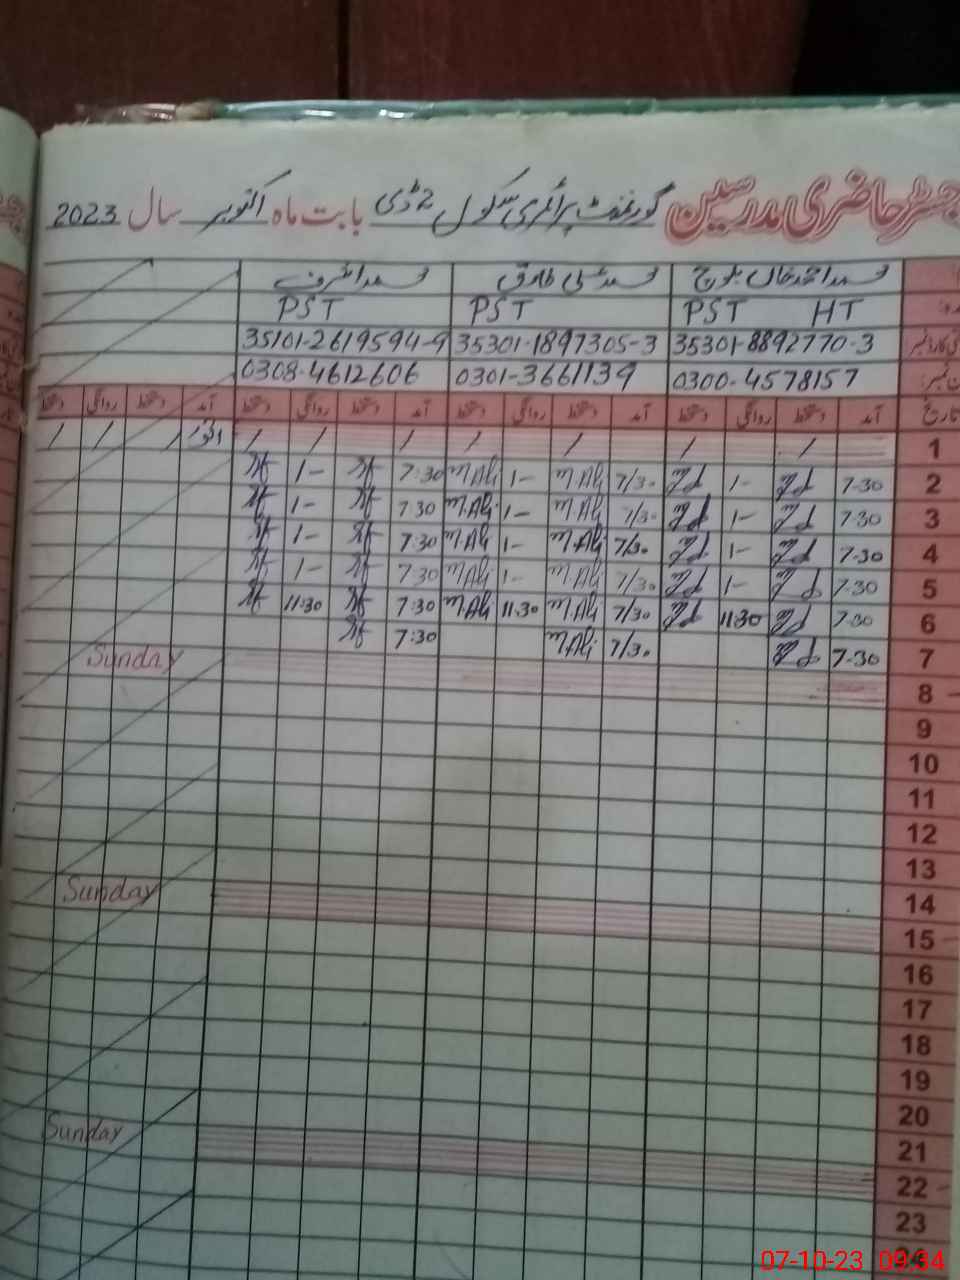 رجسٹر حاضری مدرسین گورنمنٹ پرائمری سکول 2 ڈی بابت ماہ اکتوبر سال 2023
محمد احمد خان بلوچ محمد علی طارق محمد اشرف
PST HT PST PST
35301-8892770-3 35301-1897305-3 35101-2619594-9
0300-4578157 0301-3661139 0308-4612606
تاریخ آمد دستخط روانگی دستخط آمد دستخط روانگی دستخط آمد دستخط روانگی دستخط آمد دستخط روانگی دستخط
1 / / / / / / / اتوار / / /
2 7-30 1- 7/30 M.Ali 1- M.Ali 7:30 1-
3 7-30 1- 7/30 M.Ali 1- M.Ali 7:30 1-
4 7-30 1- 7/30 M.Ali 1- M.Ali 7:30 1-
5 7-30 1- 7/30 M.Ali 1- M.Ali 7:30 1-
6 7-30 11:30 7/30 M.Ali 11:30 M.Ali 7:30 11:30
7 7-30 7/30 M.Ali 7:30
Sunday
8
9
10
11
12
13
14
Sunday
15
16
17
18
19
20
21
Sunday
22
23
24
07-10-23 09:34